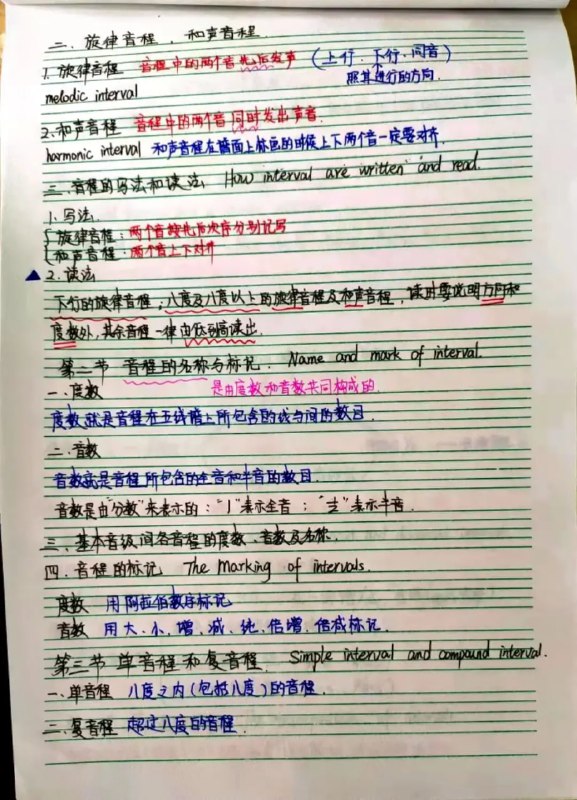 二、旋律音程、和声音程.
1. 旋律音程 音程中的两个音先后发声 (上行、下行、同音)
melodic interval 照其进行的方向.
2.和声音程 音程中的两个音同时发出声音.
harmonic interval 和声音程在谱面上标色的时候上下两个音一定要对齐.
三、音程的写法和读法 How interval are written and read.
1. 写法.
旋律音程:两个音按先后次序分别记写
和声音程:两个音上下对齐
▲2. 读法
下行的旋律音程,八度及八度以上的旋律音程及和声音程,读时要说明方向和
度数外,其余音程一律由低到高读出.
第二节 音程的名称与标记. Name and mark of interval.
一、度数 是由度数和音数共同构成的.
度数就是音程在五线谱上所包含的线与间的数目.
二、音数
音数就是音程所包含的全音和半音的数目.
音数是由"分数"来表示的:"1"表示全音;"½"表示半音.
三、基本音级间各音程的度数、音数及名称.
四、音程的标记 The Marking of intervals.
度数 用阿拉伯数字标记
音数 用大、小、增、减、纯、倍增、倍减标记.
第三节 单音程和复音程. Simple interval and compound interval.
一、单音程 八度之内(包括八度)的音程.
二、复音程 超过八度的音程.